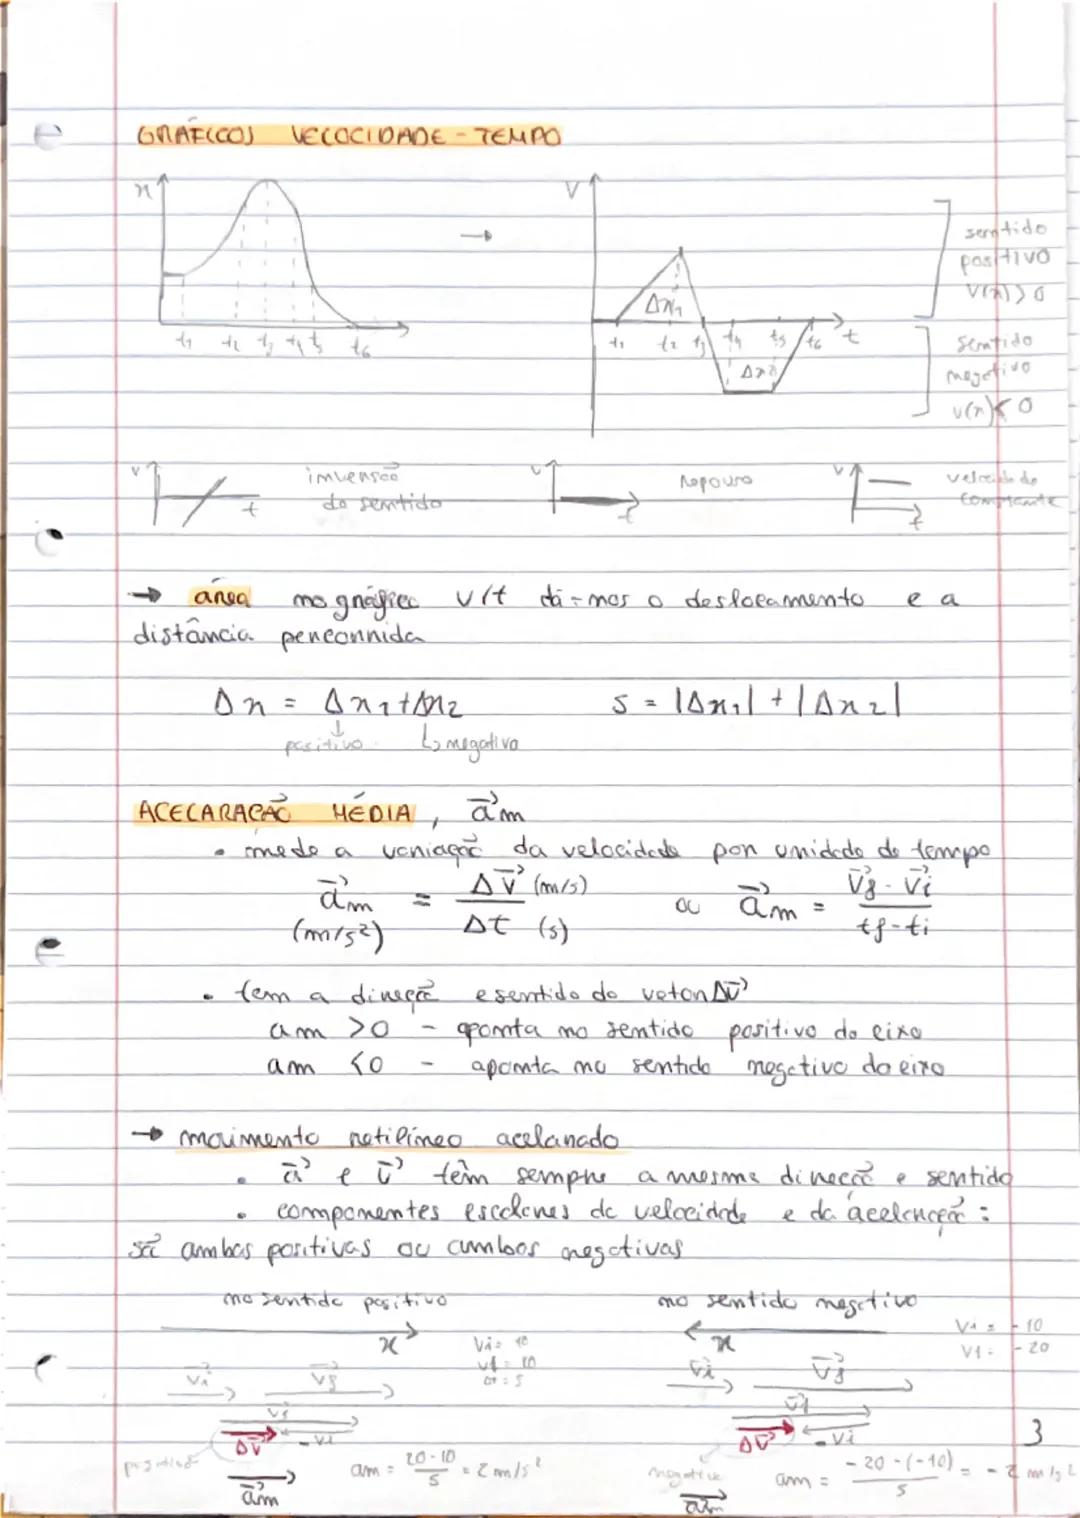 GRÁFICOS VELOCIDADE - TEMPO
x
t1 t2 t3 t4 t5 t6
→
v
Δx1
t1 t2 t3 t4 t5 t6 t
Δx2
sentido
positivo
v(x) > 0
sentido
negativo
v(x) < 0
v t inversão
do sentido
v t repouso
v t velocidade
constante
→ área no gráfico v/t dá-nos o deslocamento e a
distância percorrida
Δx = Δx1 + Δx2 s = |Δx1| + |Δx2|
positivo ↳ negativo
ACELARAÇÃO MÉDIA, a⃗m
• mede a variação da velocidade por unidade de tempo
a⃗m = Δv⃗ (m/s) / Δt (s) ou a⃗m = v⃗f - v⃗i / tf - ti
(m/s²)
• tem a direção e sentido do vetor Δv⃗
am > 0 - aponta no sentido positivo do eixo
am < 0 - aponta no sentido negativo do eixo
→ movimento retilíneo acelarado
• a⃗ e v⃗ têm sempre a mesma direcção e sentido
• componentes escalares da velocidade e da aceleração:
são ambas positivas ou ambas negativas
no sentido positivo no sentido negativo
x vi = 10 x vi = -10
vf = 10 vf = -20
Δt = 5
v⃗i v⃗f v⃗i v⃗f
vf v⃗f
Δv⃗ -vi Δv⃗ -v⃗i 3
positivo am = 20-10 / 5 = 2 m/s² negativo am = -20-(-10) / 5 = -2 m/s²
a⃗m a⃗m